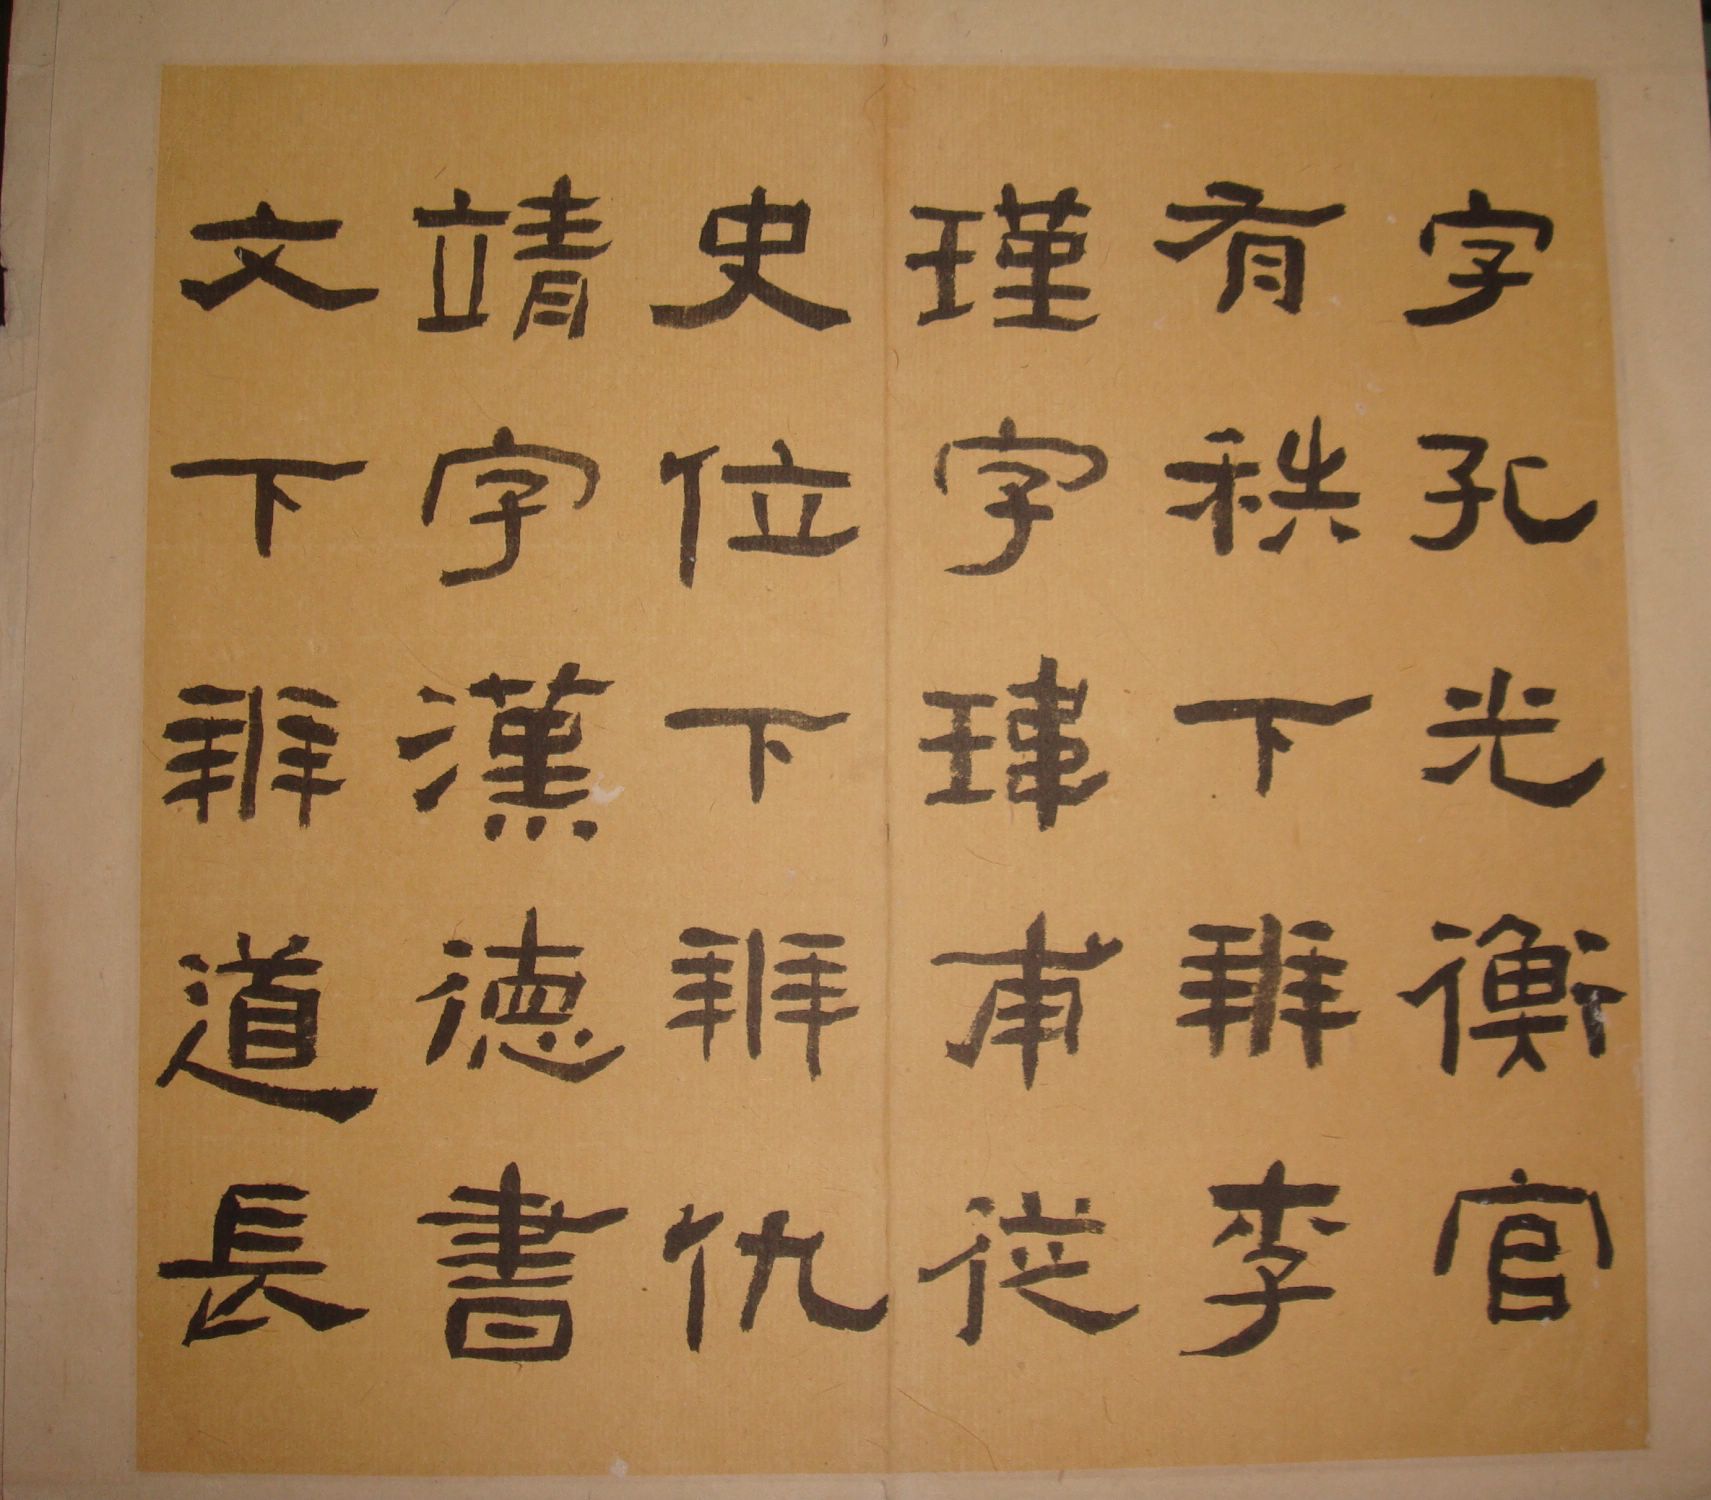 字孔光衡官
有秩下辨李
瑾字瑋甫從
史位下辨仇
靖字漢德書
文下辨道長